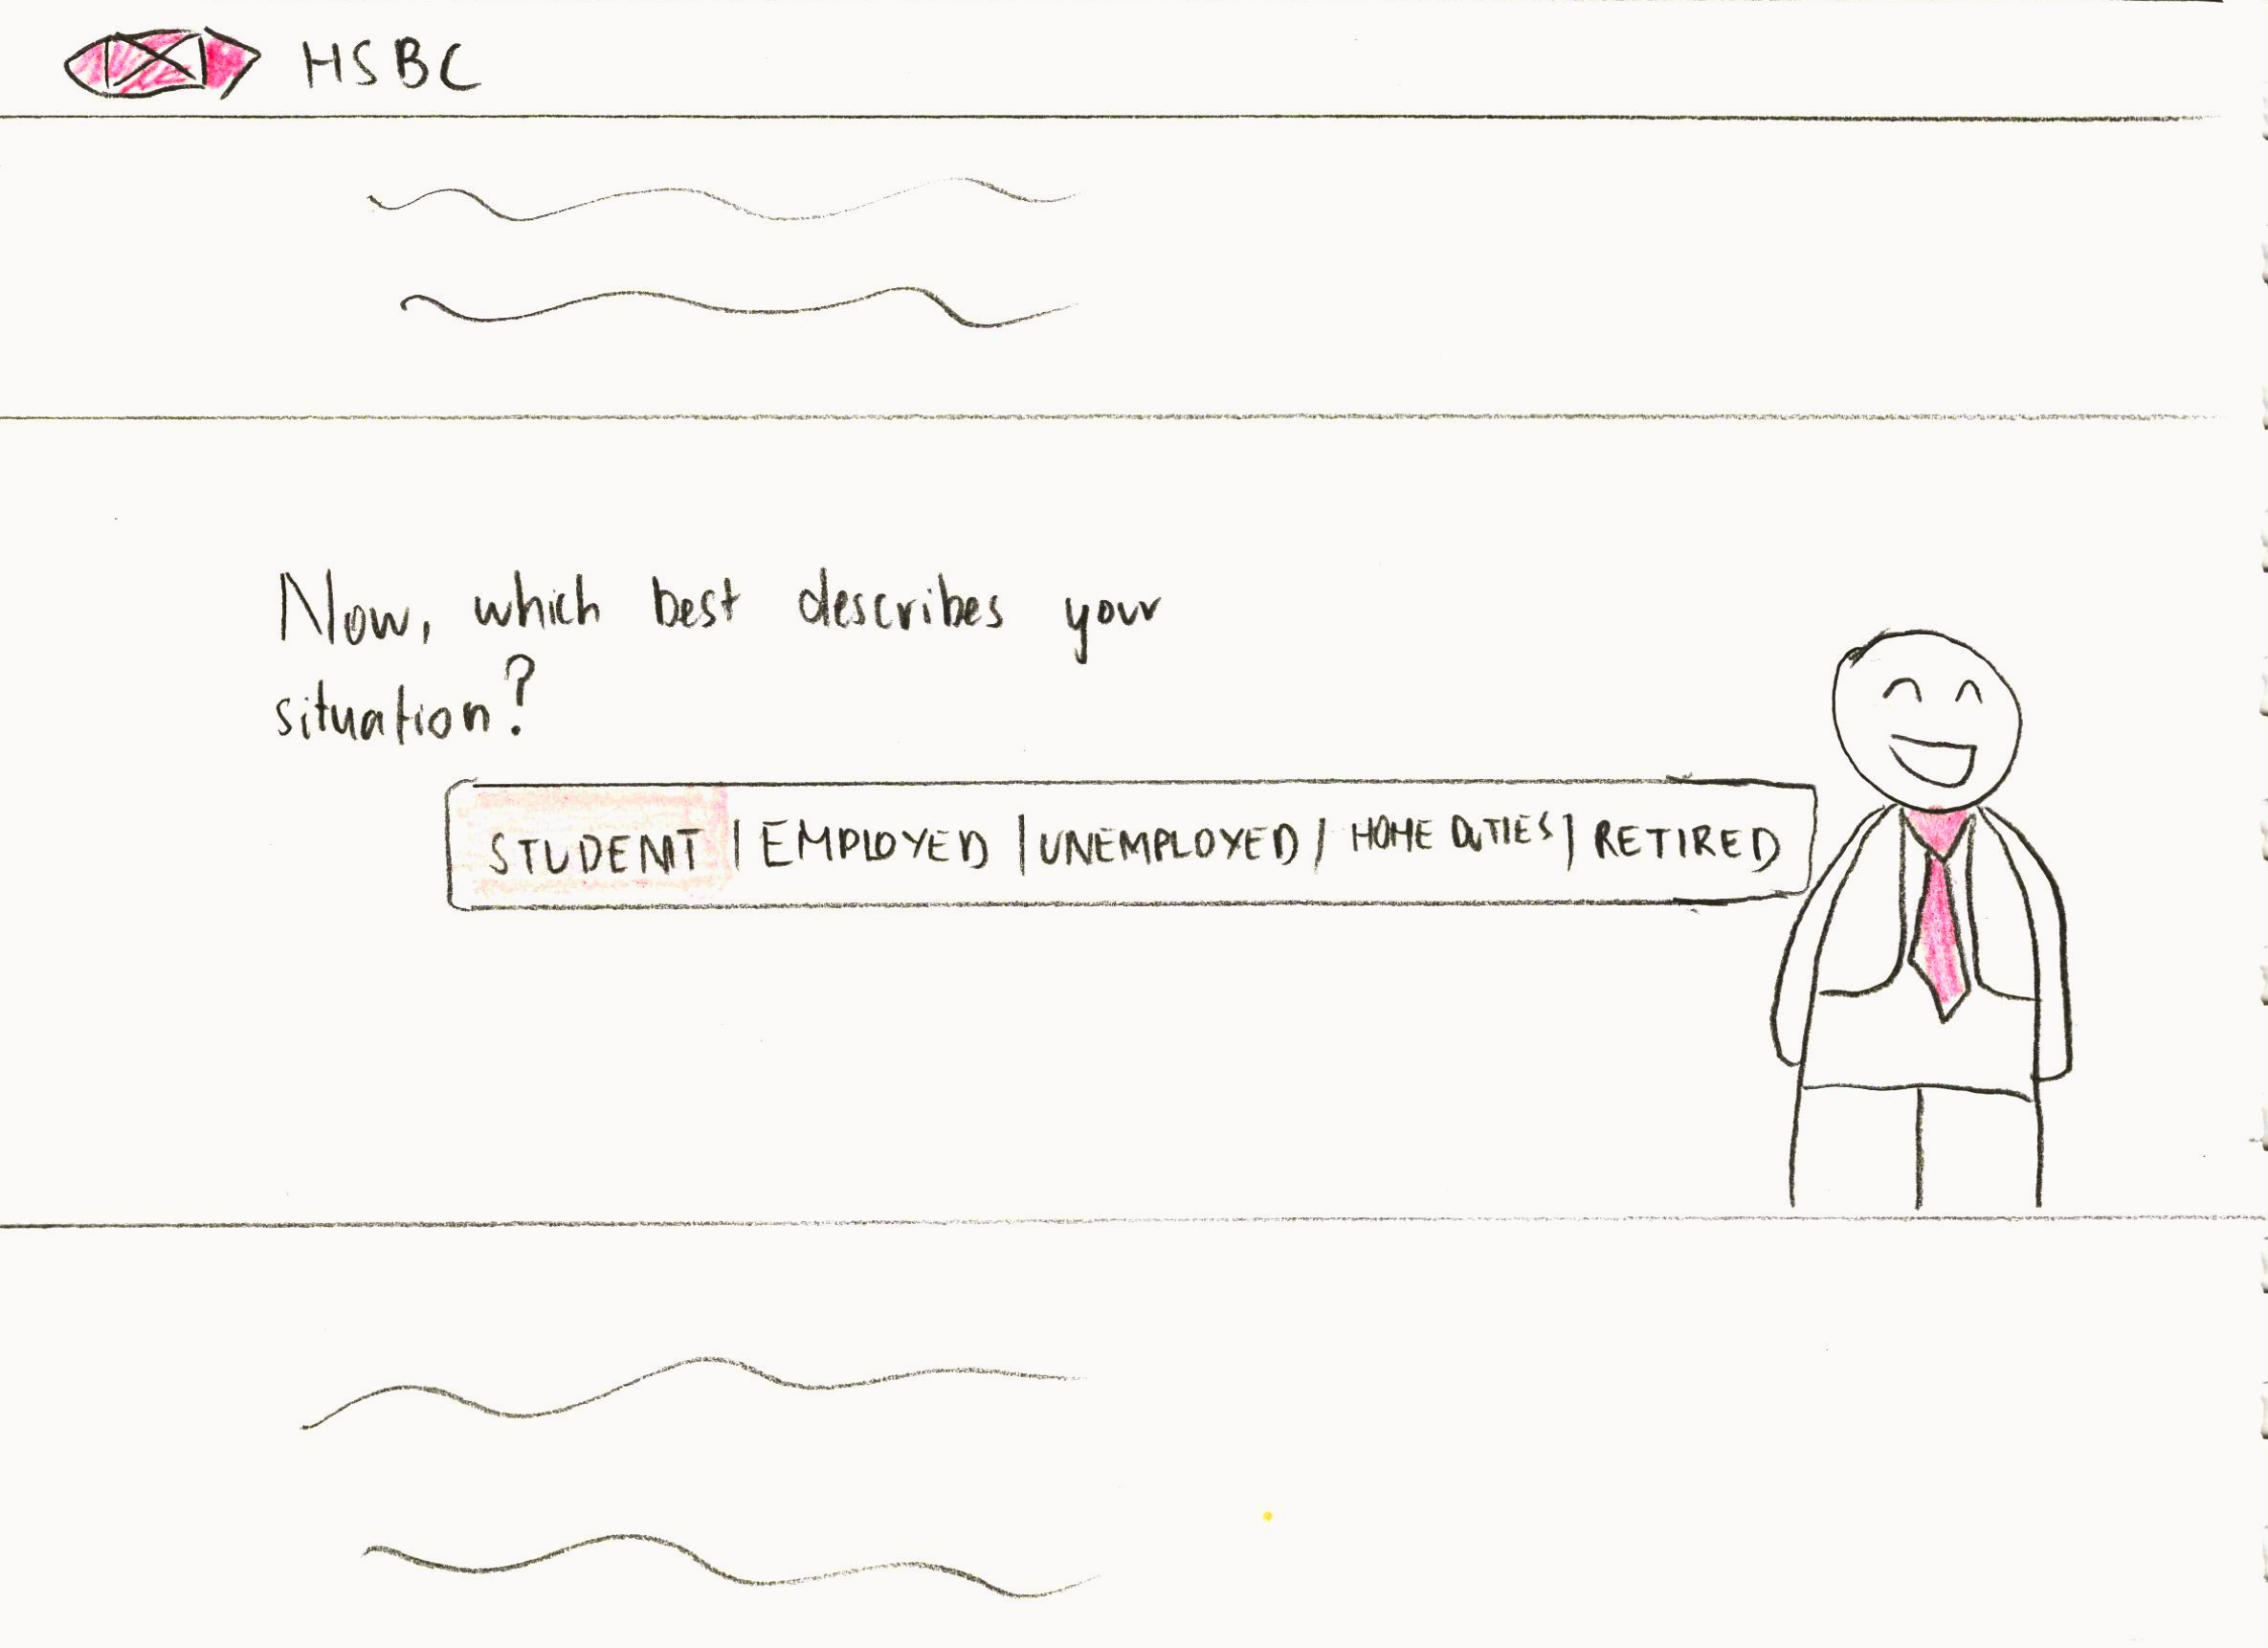 HSBC
Now, which best describes your
situation?
STUDENT | EMPLOYED | UNEMPLOYED / HOME DUTIES | RETIRED